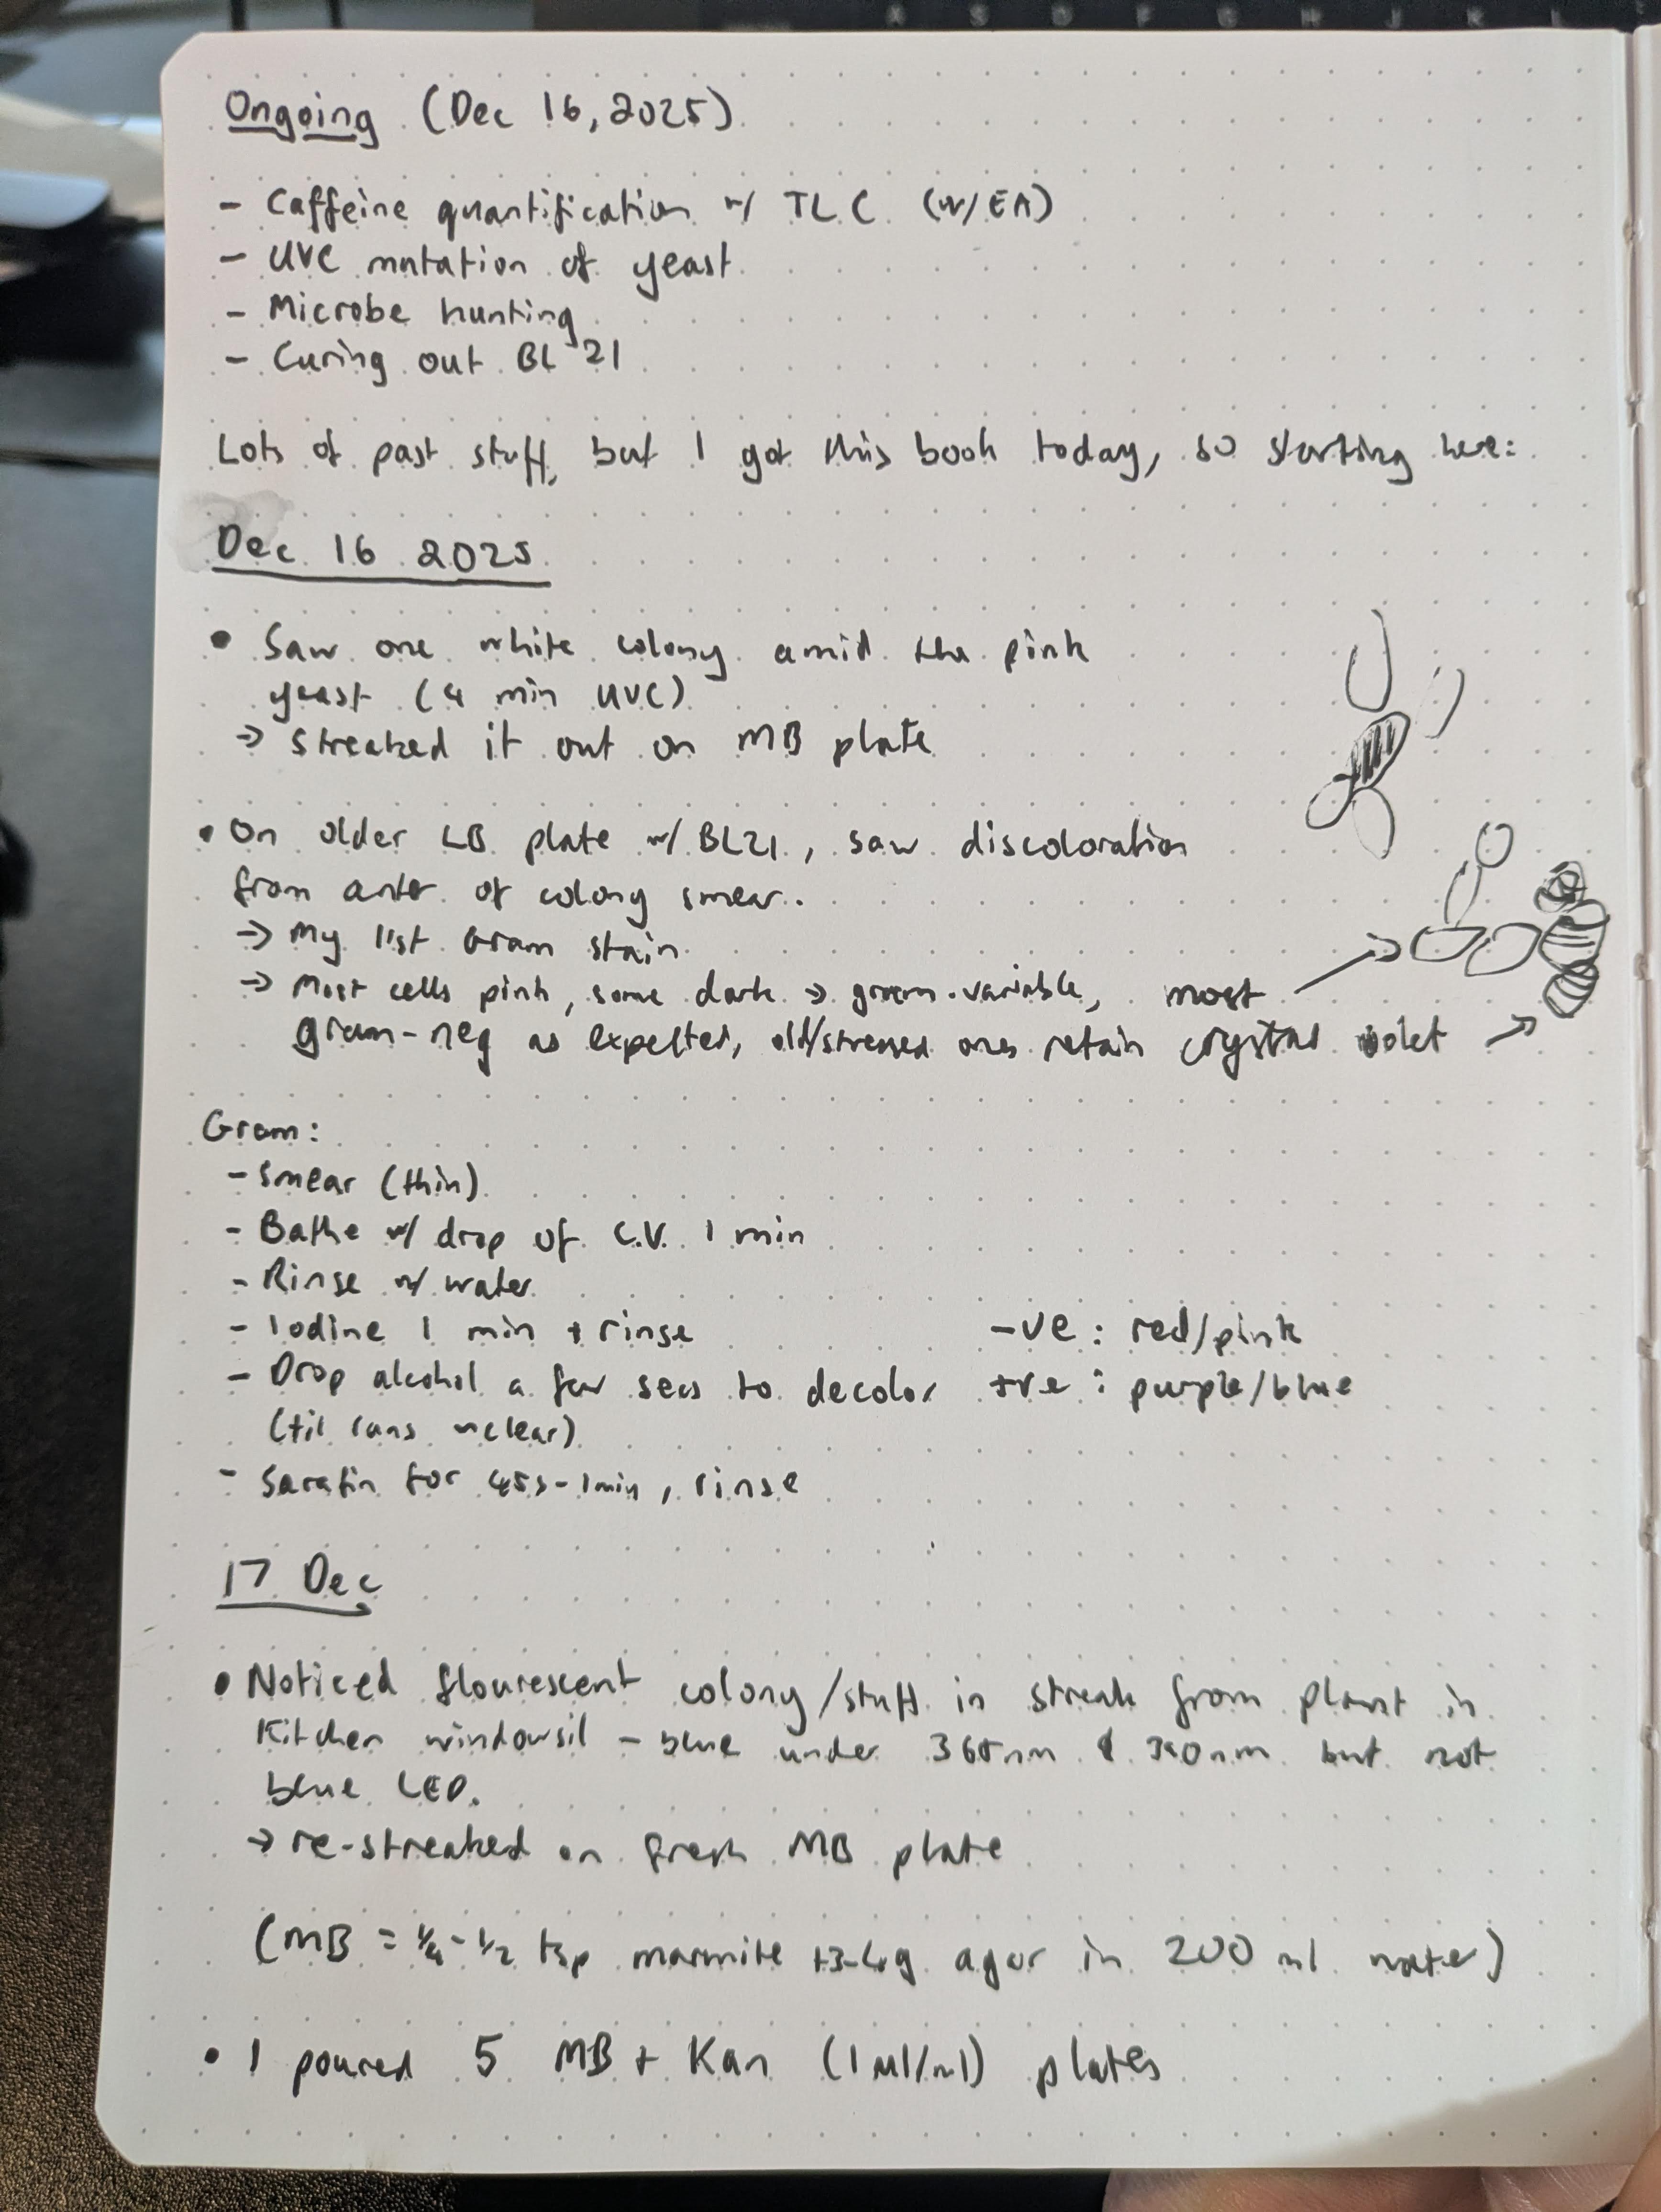 Ongoing (Dec 16, 2025)
- Caffeine quantification w/ TLC (w/EA)
- UVC mutation of yeast
- Microbe hunting
- Curing out BL 21
Lots of past stuff, but I got this book today, so starting here:
Dec 16 2025
• Saw one white colony amid the pink
yeast (4 min UVC)
→ streaked it out on MB plate
• On older LB plate w/ BL21, saw discoloration
from center of colony smear.
→ My 1st Gram stain
→ Most cells pink, some dark → gram-variable, most
gram-neg as expected, old/stressed ones retain crystal violet
Gram:
- Smear (thin)
- Bathe w/ drop of C.V. 1 min
- Rinse w/ water
- Iodine 1 min + rinse
- Drop alcohol a few secs to decolor
(til runs clear)
- Safafin for 45s-1min, rinse
-ve : red/pink
+ve : purple/blue
17 Dec
• Noticed flourescent colony/stuff in streak from plant in
Kitchen windowsil - blue under 365nm & 390nm but not
blue LED.
→ re-streaked on fresh MB plate
(MB = 1/4-1/2 tsp marmite +3-4g agar in 200 ml water)
• I poured 5 MB + Kan (1 µl/ml) plates